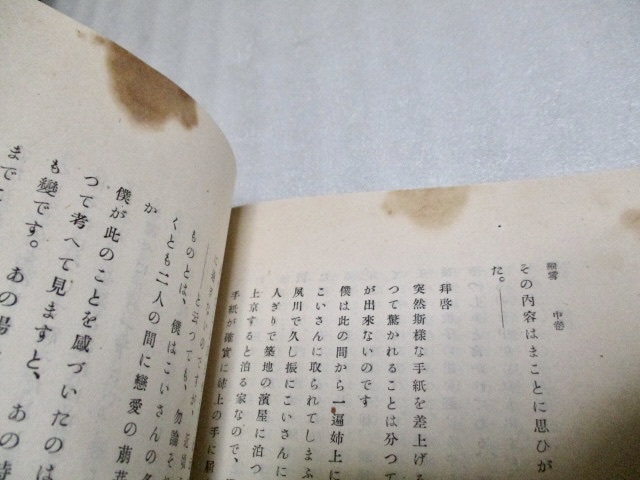 細雪 中巻
その内容はまことに思ひが
た。――
拝啓
突然斯様な手紙を差上げる
つて驚かれることは分つて
が出來ないのです
僕は此の間から一遍姉上に
こいさんに取られてしまふ
夙川で久し振にこいさんに
人ぎりで築地の濱屋に泊つ
上京すると泊る家なので、
手紙が確實に姉上の手に屆
――と云つても、勿論
ものとは、僕はこいさんの
くとも二人の間に戀愛の萠芽
か
僕が此のことを感づいたのは
つて考へて見ますと、あの時
も變です。あの場
まで